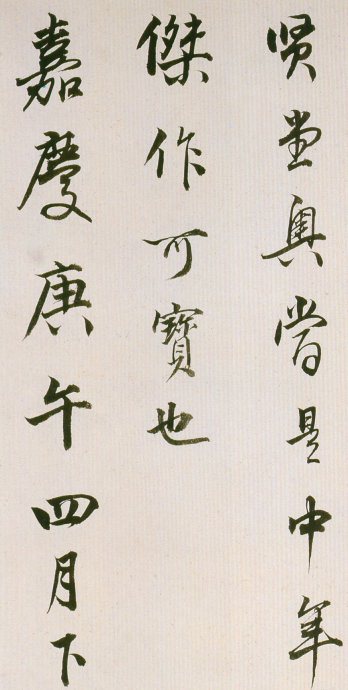 贤堂當是中年
傑作可寶也
嘉慶庚午四月下